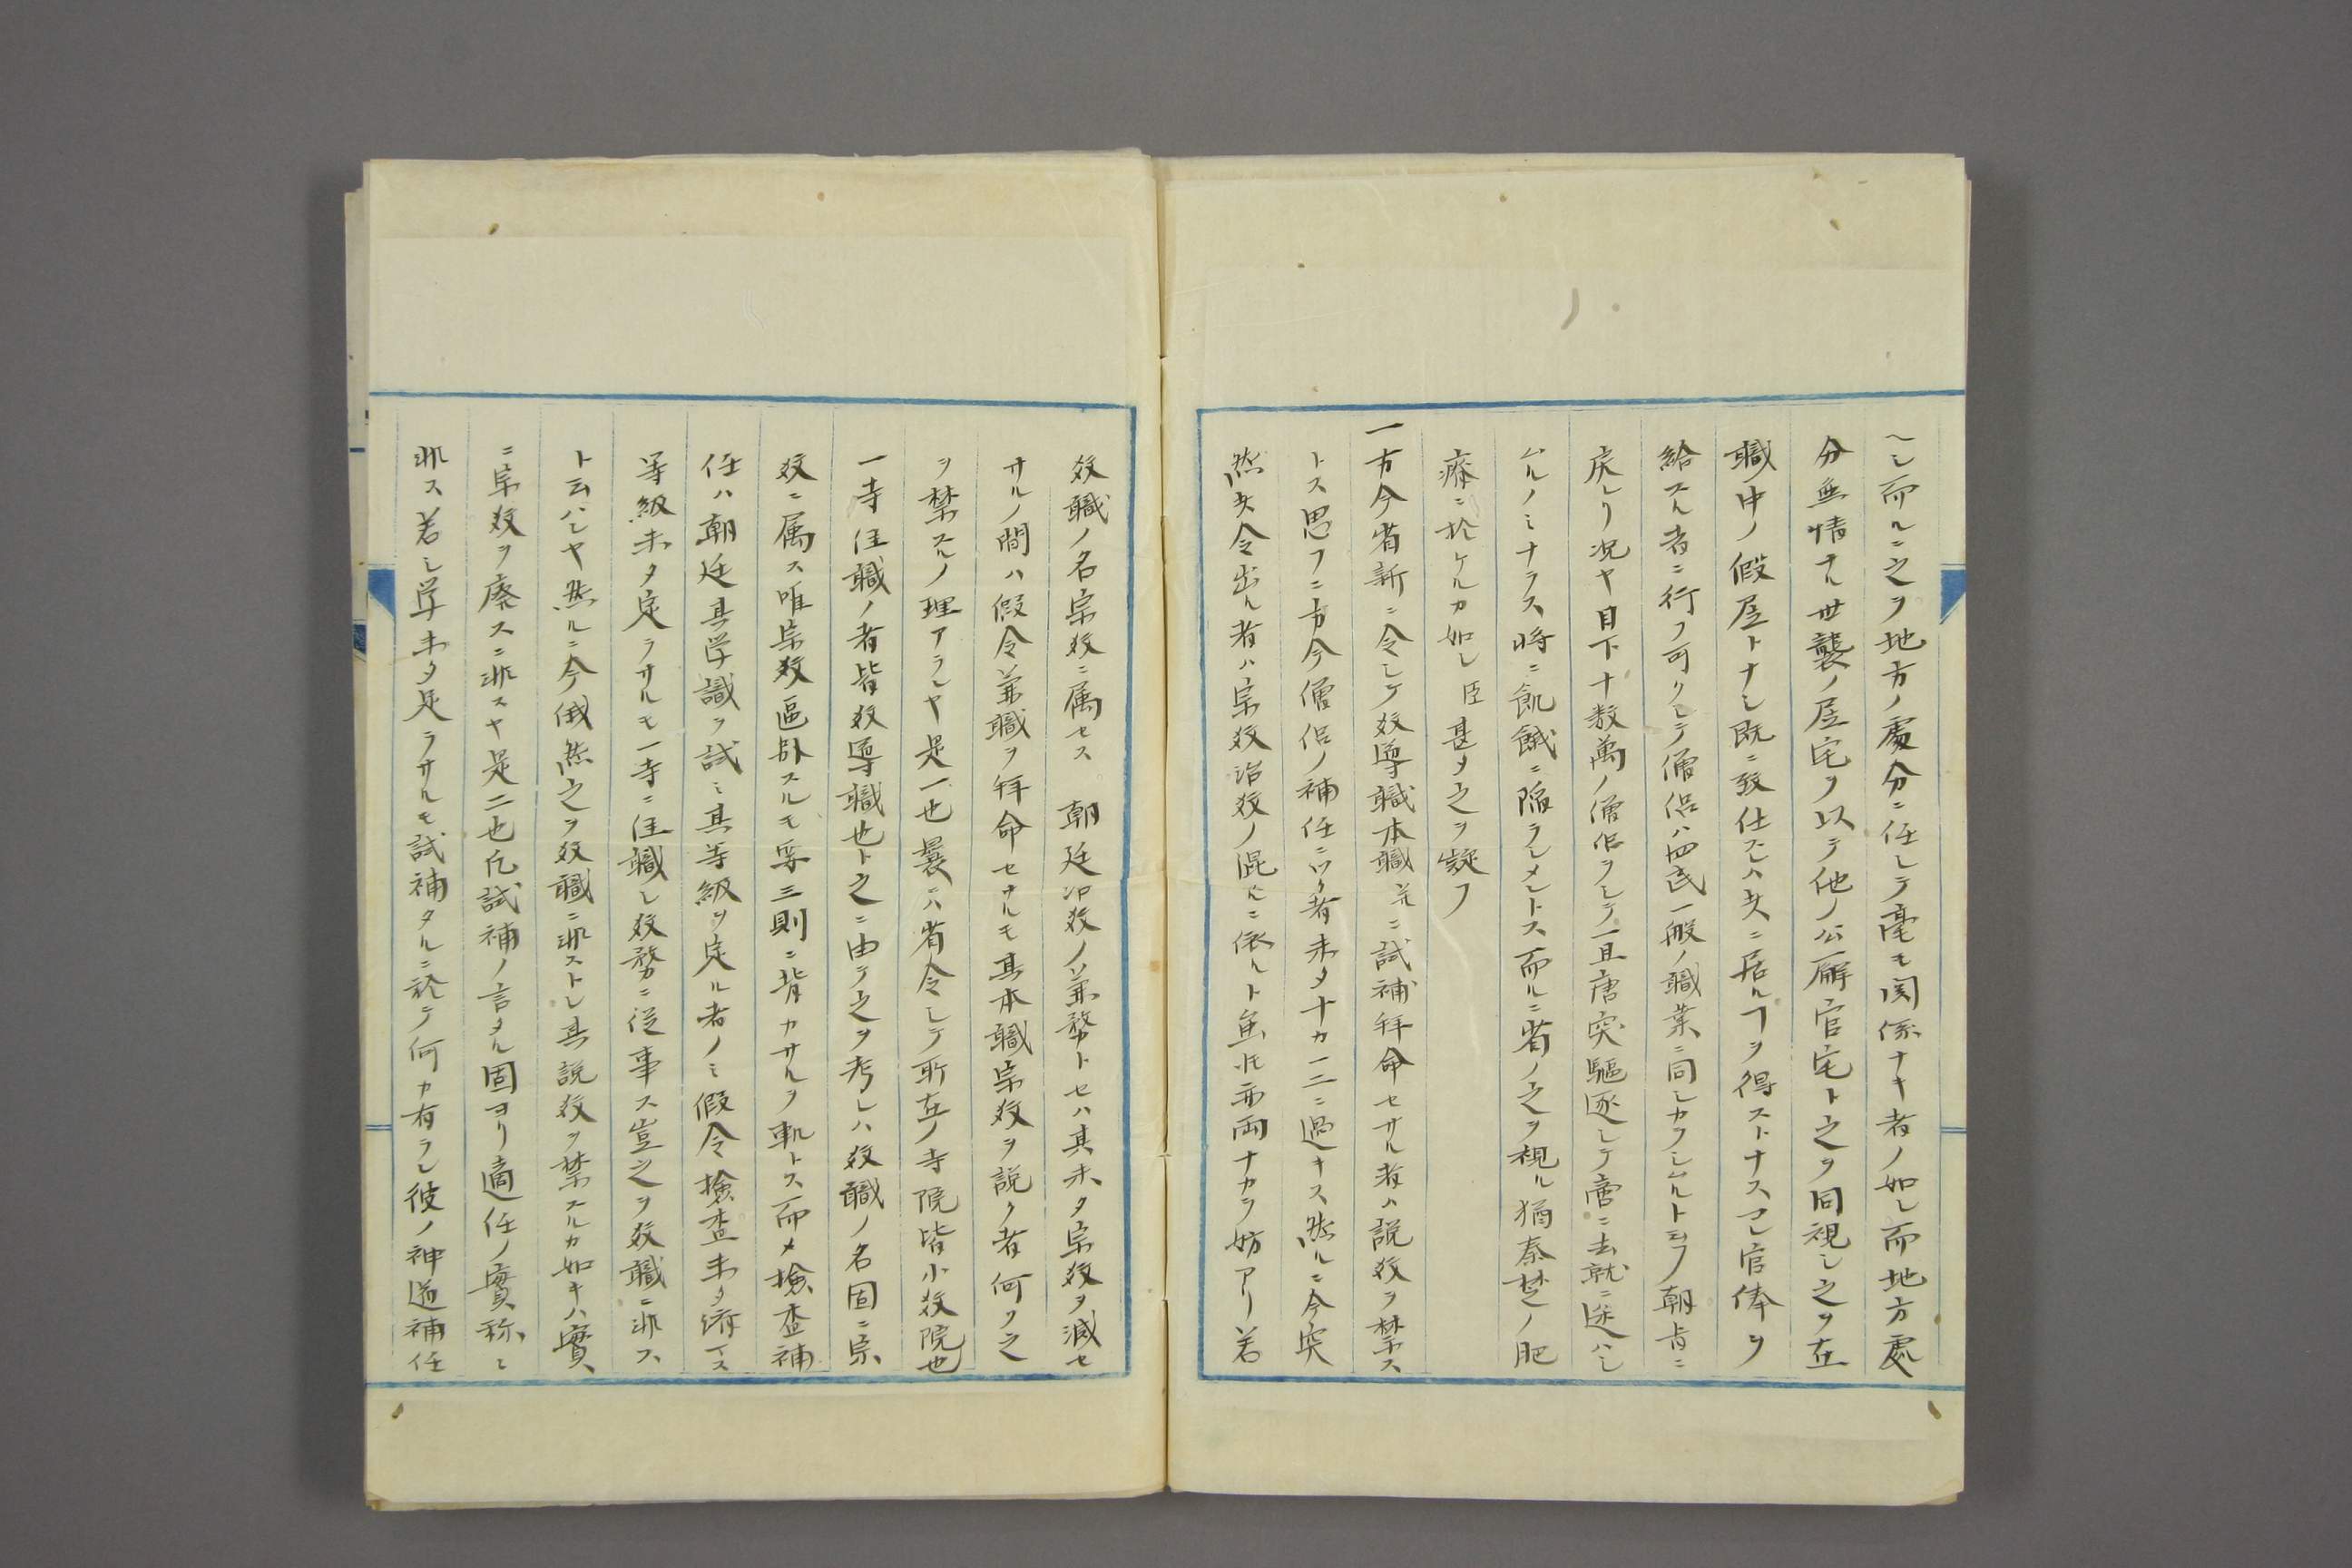 ヘシ而ルニ之ヲ地方ノ處分ニ任シテ毫モ関係ナキ者ノ如シ而地方處
分無情ナル世襲ノ居宅ヲ以テ他ノ公廨官宅ト之ヲ同視シ之ヲ在
職中ノ假屋トナシ既ニ致仕スレハ夫ニ居ルヿヲ得ストナス夫レ官俸ヲ
給スル者ニ行フ可クシテ僧侶ハ四民一般ノ職業ニ同シカラシムルト云フ朝旨ニ
戻レリ况ヤ目下十数萬ノ僧侶ヲシテ一旦唐突驅逐シテ啻ニ去就ニ迷ハシ
ムルノミナラス將ニ飢餓ニ陥ラシメントス而ルニ省ノ之ヲ視ル猶秦楚ノ肥
瘠ニ於ケルカ如シ臣甚タ之ヲ疑フ
一方今省新ニ令シテ教導職本職并ニ試補拜命セサル者ハ説教ヲ禁ス
トス思フニ方今僧侶ノ補任ニツク者未タ十カ一二ニ過キス然ルニ今突
然夫令出ル者ハ宗教治教ノ混スルニ依ルト虽𪜈亦両ナカラ妨アリ若
教職ノ名宗教ニ属セス 朝廷治教ノ兼務トセハ其未タ宗教ヲ滅セ
サルノ間ハ假令兼職ヲ拜命セサルモ其本職宗教ヲ説ク者何ソ之
ヲ禁スルノ理アランヤ是一也曩ニハ省令シテ所在ノ寺院皆小教院也
一寺住職ノ者皆教導職也ト之ニ由テ之ヲ考レハ教職ノ名固ニ宗
教ニ属ス唯宗教區別スルモ等三則ニ背カサルヲ軌トス而メ檢查補
任ハ朝廷其学識ヲ試ミ其等級ヲ定ル者ノミ假令檢查未タ済マス
等級未タ定ラサルモ一寺ニ住職シ教務ニ従事ス豈之ヲ教職ニ非ス
ト云ハンヤ然ルニ今俄然之ヲ教職ニ非ストシ其説教ヲ禁スルカ如キハ實
ニ宗教ヲ廢スニ非スヤ是二也凡試補ノ言タル固ヨリ適任ノ實称ニ
非ス若シ学未タ足ラサルモ試補タルニ於テ何カ有ラン彼ノ神道補任